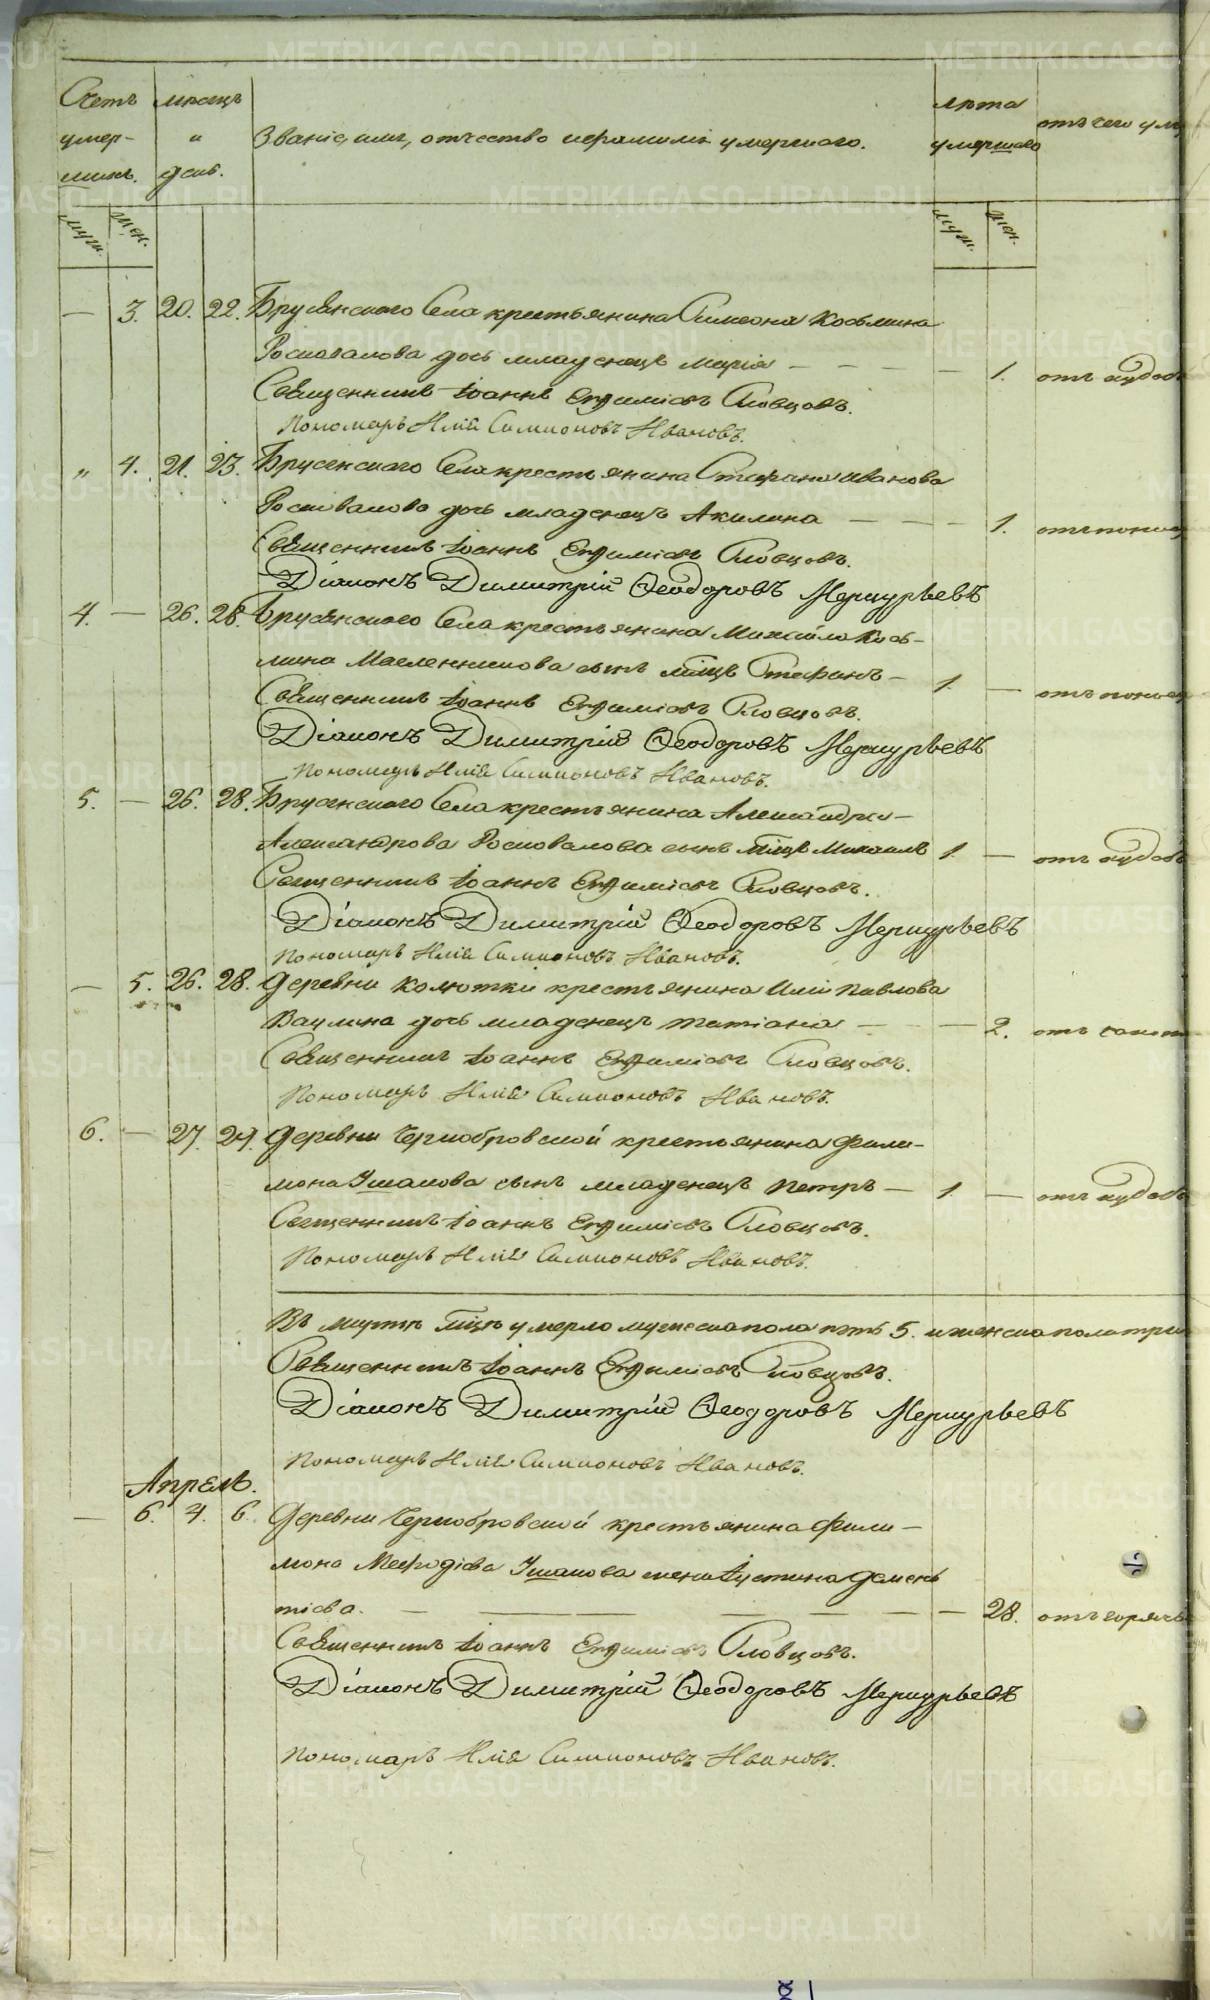 METRIKI.GASO-URAL.RU
Счетъ умер- шихъ.
мѣсяцъ и день.
Званіе, имя, отчество и фамилія умершаго.
лѣта умершаго
отъ чего уме
муж. жен.
муж. жен.
— 3. 20. 22. Брусянскаго Села крестьянина Симеона Козьмина
Росковалова дочь младенецъ Марія — — — — 1. отъ худоб
Священникъ Іоаннъ Евѳиміевъ Словцовъ.
Пономарь Илія Симионовъ Ивановъ.
„ 4. 21. 23. Брусянскаго Села крестьянина Стефана Иванова
Росковалова дочь младенецъ Акилина — — — 1. отъ понос
Священникъ Іоаннъ Евѳиміевъ Словцовъ.
Діаконъ Димитрій Ѳеодоровъ Меркурьевъ
4. — 26. 28. Брусянскаго Села крестьянина Михайла Козь-
мина Масленникова сынъ млцъ Стефанъ — 1. — отъ понос
Священникъ Іоаннъ Евѳиміевъ Словцовъ.
Діаконъ Димитрій Ѳеодоровъ Меркурьевъ
Пономарь Илія Симионовъ Ивановъ.
5. — 26. 28. Брусянскаго Села крестьянина Александра —
Александрова Росковалова сынъ млцъ Михаилъ 1. — отъ худоб
Священникъ Іоаннъ Евѳиміевъ Словцовъ.
Діаконъ Димитрій Ѳеодоровъ Меркурьевъ
Пономарь Илія Симионовъ Ивановъ.
— 5. 26. 28. Деревни Колютки крестьянина Иліи Павлова
Ваулина дочь младенецъ Татіана — — — 2. отъ
Священникъ Іоаннъ Евѳиміевъ Словцовъ.
Пономарь Илія Симионовъ Ивановъ.
6. — 27. 29. Деревни Чернобровской крестьянина Фили-
мона Ушакова сынъ младенецъ Петръ — 1. — отъ худоб
Священникъ Іоаннъ Евѳиміевъ Словцовъ.
Пономарь Илія Симионовъ Ивановъ.
Въ мартѣ мцѣ умерло мужеска пола пять 5. и женска пола три
Священникъ Іоаннъ Евѳиміевъ Словцовъ.
Діаконъ Димитрій Ѳеодоровъ Меркурьевъ
Пономарь Илія Симионовъ Ивановъ.
Апрель.
— 6. 4. 6. Деревни Чернобровской крестьянина Фили —
мона Меѳодіева Ушакова жена Іустина Демень
тіева. — — — — — — — 28. отъ горячк
Священникъ Іоаннъ Евѳиміевъ Словцовъ.
Діаконъ Димитрій Ѳеодоровъ Меркурьевъ
Пономарь Илія Симионовъ Ивановъ.